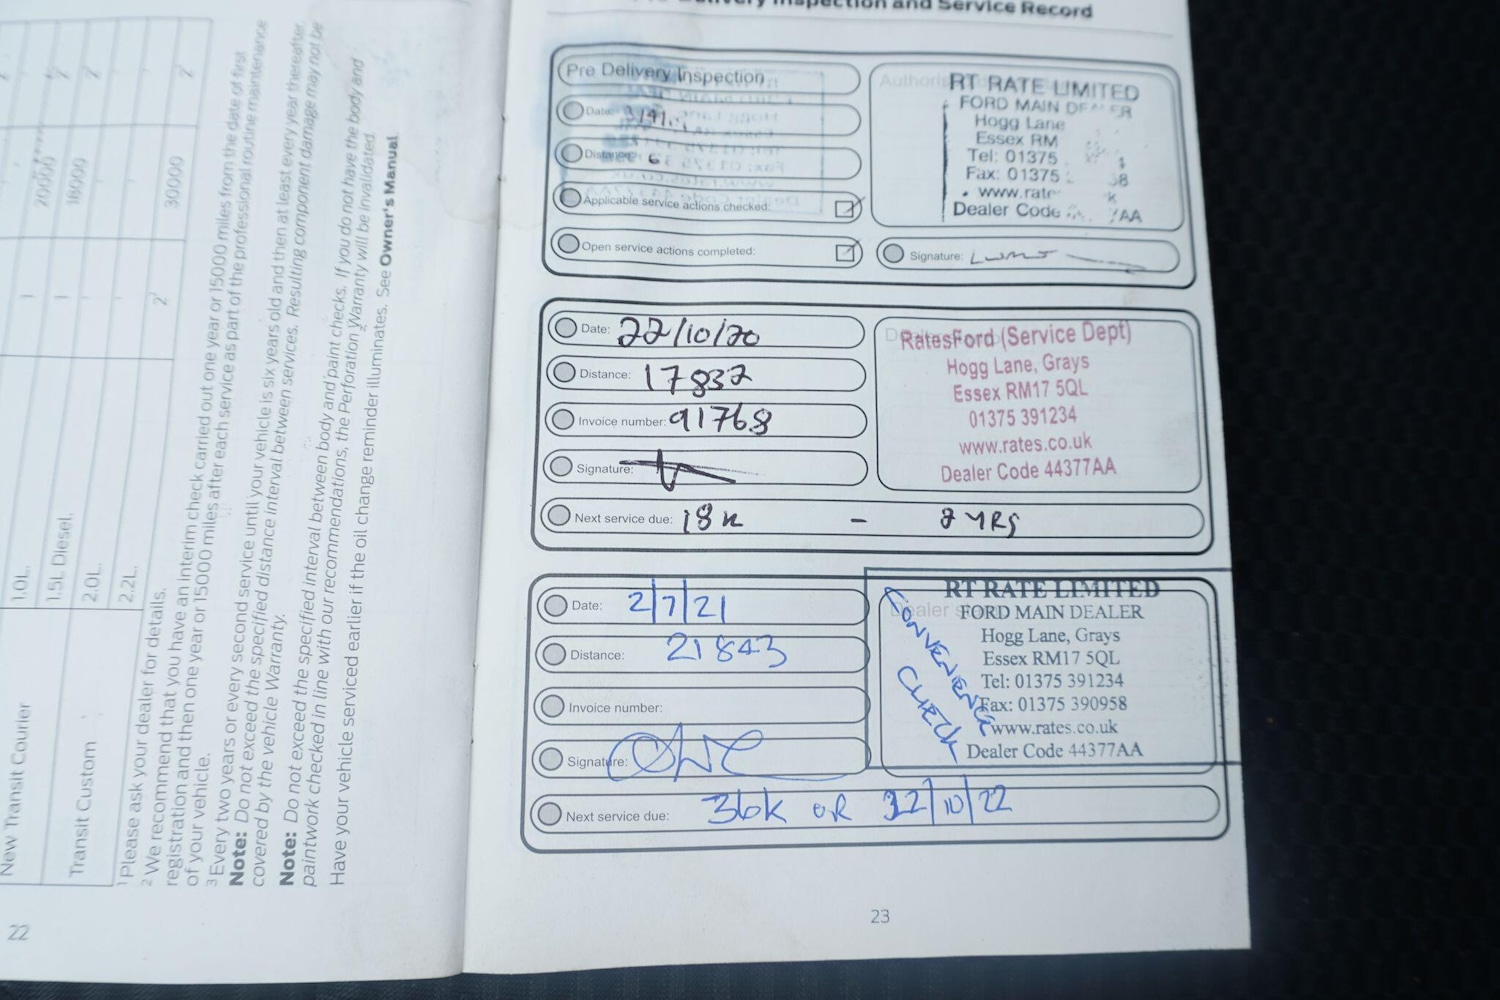 20000
18000
30000
1
1
2
1.0L.
1.5L Diesel.
2.0L.
2.2L.
New Transit Courier
Transit Custom
1 Please ask your dealer for details.
2 We recommend that you have an interim check carried out one year or 15000 miles from the date of first
registration and then one year or 15000 miles after each service as part of the professional routine maintenance
of your vehicle.
3 Every two years or every second service until your vehicle is six years old and then at least every year thereafter.
Note: Do not exceed the specified distance interval between services. Resulting component damage may not be
covered by the vehicle Warranty.
Note: Do not exceed the specified interval between body and paint checks. If you do not have the body and
paintwork checked in line with our recommendations, the Perforation Warranty will be invalidated.
Have your vehicle serviced earlier if the oil change reminder illuminates. See Owner's Manual
22
Delivery Inspection and Service Record
Pre Delivery Inspection
Date:
Distance: 6
Applicable service actions checked:
Open service actions completed:
RT RATE LIMITED
FORD MAIN DEALER
Hogg Lane
Essex RM
Tel: 01375
Fax: 01375
www.rate
Dealer Code AA
Signature:
Date: 22/10/20
Distance: 17832
Invoice number: 91768
Signature:
Next service due: 18K - 2 YRS
RatesFord (Service Dept)
Hogg Lane, Grays
Essex RM17 5QL
01375 391234
www.rates.co.uk
Dealer Code 44377AA
Date: 2/7/21
Distance: 21843
Invoice number:
Signature:
Next service due: 36K OR 22/10/22
RT RATE LIMITED
FORD MAIN DEALER
Hogg Lane, Grays
Essex RM17 5QL
Tel: 01375 391234
Fax: 01375 390958
www.rates.co.uk
Dealer Code 44377AA
CHECK
23